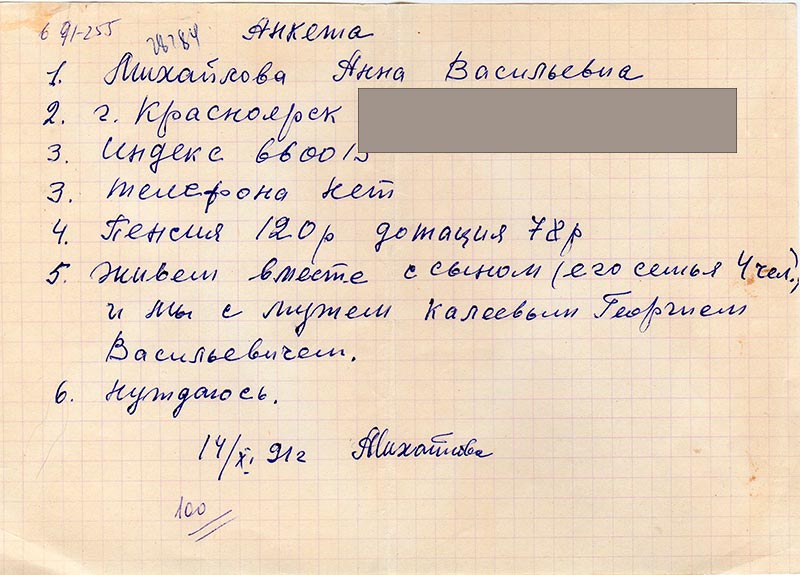 6 91-255 28284 Анкета
1. Михайлова Анна Васильевна
2. г. Красноярск
3. Индекс 660015
3. телефона нет
4. Пенсия 120р дотация 78р
5. живем вместе с сыном (его семья 4 чел.)
и мы с мужем Калеевым Георгием
Васильевичем.
6. нуждаюсь.
14/XI 91г Михайлова
100